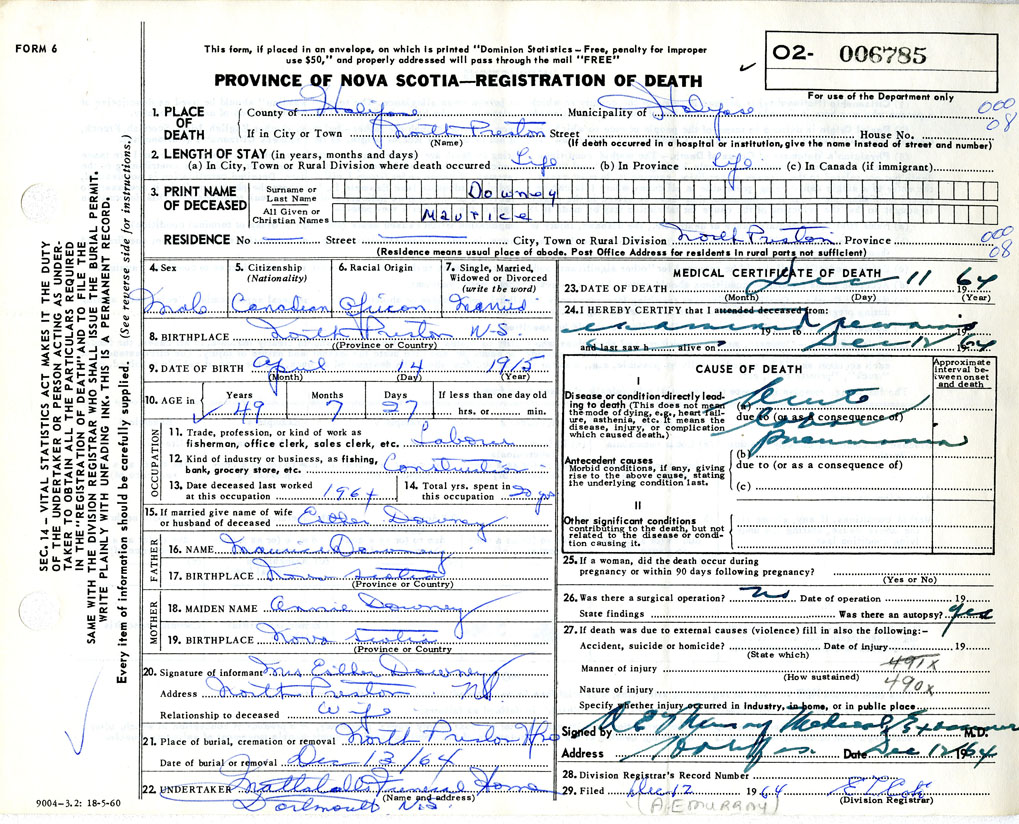 FORM 6
This form, if placed in an envelope, on which is printed "Dominion Statistics – Free, penalty for improper
use $50," and properly addressed will pass through the mail "FREE"
O2- 006785
For use of the Department only
PROVINCE OF NOVA SCOTIA—REGISTRATION OF DEATH
1. PLACE OF DEATH
County of Halifax Municipality of Halifax 000
If in City or Town North Preston Street House No. 08
(Name) (If death occurred in a hospital or institution, give the name instead of street and number)
2. LENGTH OF STAY (in years, months and days)
(a) In City, Town or Rural Division where death occurred Life (b) In Province Life (c) In Canada (if immigrant)
3. PRINT NAME OF DECEASED
Surname or Last Name Downey
All Given or Christian Names Maurice
RESIDENCE No Street City, Town or Rural Division North Preston Province 000
08
(Residence means usual place of abode. Post Office Address for residents in rural parts not sufficient)
4. Sex Male
5. Citizenship (Nationality) Canadian
6. Racial Origin African
7. Single, Married, Widowed or Divorced (write the word) Married
8. BIRTHPLACE North Preston N-S
(Province or Country)
9. DATE OF BIRTH April 14 1915
(Month) (Day) (Year)
10. AGE in Years Months Days If less than one day old
49 7 27 hrs. or min.
OCCUPATION
11. Trade, profession, or kind of work as
fisherman, office clerk, sales clerk, etc. Laborer
12. Kind of industry or business, as fishing,
bank, grocery store, etc. Construction
13. Date deceased last worked
at this occupation 1964
14. Total yrs. spent in
this occupation 20 yrs
15. If married give name of wife
or husband of deceased Downey
FATHER
16. NAME Maurice Downey
17. BIRTHPLACE Nova Scotia
(Province or Country)
MOTHER
18. MAIDEN NAME Annie Downey
19. BIRTHPLACE Nova Scotia
(Province or Country
20. Signature of informant Mrs Downey
Address North Preston NS
Relationship to deceased Wife
21. Place of burial, cremation or removal North Preston
Date of burial or removal Dec 13/64
22. UNDERTAKER Funeral Home
(Name and address)
Dartmouth N.S.
9004-3.2: 18-5-60
MEDICAL CERTIFICATE OF DEATH
23. DATE OF DEATH Dec 11 1964
(Month) (Day) (Year)
24. I HEREBY CERTIFY that I attended deceased from:
examined remains 19 to 19
and last saw h alive on Dec 12 1964
CAUSE OF DEATH
Approximate interval between onset and death
I
Disease or condition directly leading to death (This does not mean the mode of dying, e.g., heart failure, asthenia, etc. It means the disease, injury, or complication which caused death.)
(a) Acute
due to (or as a consequence of)
Lobar
pneumonia
Antecedent causes
Morbid conditions, if any, giving rise to the above cause, stating the underlying condition last.
(b)
due to (or as a consequence of)
(c)
II
Other significant conditions
contributing to the death, but not related to the disease or condition causing it.
25. If a woman, did the death occur during
pregnancy or within 90 days following pregnancy?
(Yes or No)
26. Was there a surgical operation? no Date of operation 19
State findings Was there an autopsy? yes
27. If death was due to external causes (violence) fill in also the following:–
Accident, suicide or homicide? Date of injury 19
(State which)
Manner of injury 491x
(How sustained)
Nature of injury 490x
Specify whether injury occurred in industry, in home, or in public place
Signed by Medical Examiner M.D.
Address Halifax Date Dec 12 1964
28. Division Registrar's Record Number
29. Filed Dec 12 1964
(Division Registrar)
(A.E MURRAY)
SEC. 14 – VITAL STATISTICS ACT MAKES IT THE DUTY
OF THE UNDERTAKER OR PERSON ACTING AS UNDER-
TAKER TO OBTAIN ALL THE PARTICULARS REQUIRED
IN THE "REGISTRATION OF DEATH" AND TO FILE THE
SAME WITH THE DIVISION REGISTRAR WHO SHALL ISSUE THE BURIAL PERMIT.
WRITE PLAINLY WITH UNFADING INK. THIS IS A PERMANENT RECORD.
Every item of information should be carefully supplied. (See reverse side for instructions.)